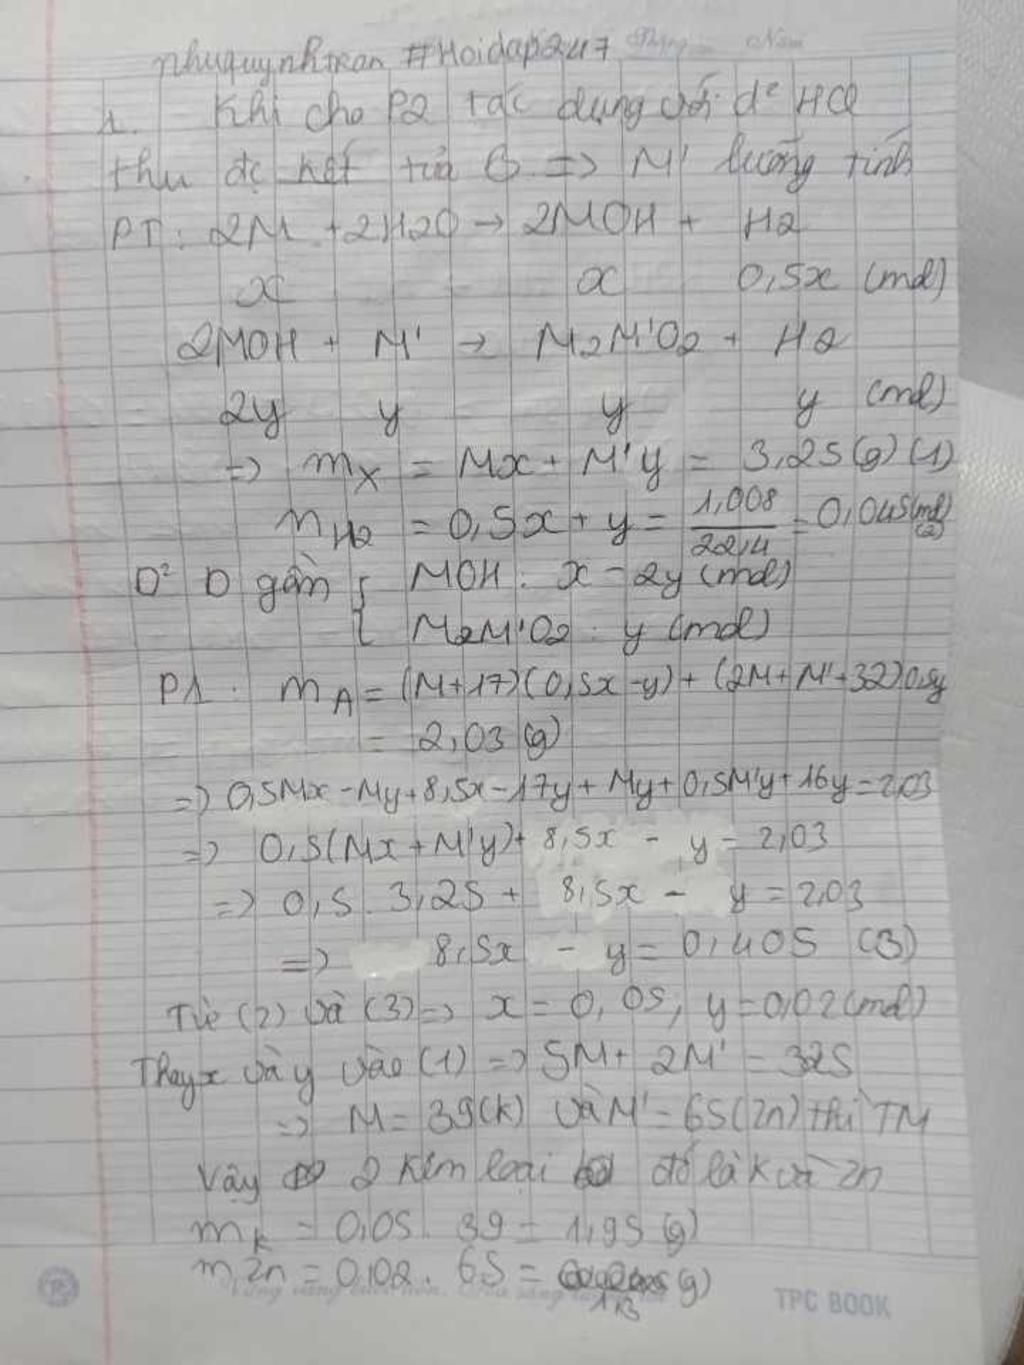 nhuquynhtran #Hoidap247
1. Khi cho P2 tác dụng với d² HCl
thu đc kết tủa B => M' lưỡng tính
PT: 2M + 2H2O → 2MOH + H2
x x 0,5x (mol)
2MOH + M' → M2M'O2 + H2
2y y y y (mol)
=> mX = Mx + M'y = 3,25(g) (1)
nH2 = 0,5x + y = 1,008/22,4 = 0,045(mol) (2)
D² D gồm { MOH: x - 2y (mol)
{ M2M'O2: y (mol)
P1: mA = (M+17)(0,5x-y) + (2M+M'+32)0,5y
= 2,03 (g)
=> 0,5Mx - My + 8,5x - 17y + My + 0,5M'y + 16y = 2,03
=> 0,5(Mx + M'y) + 8,5x - y = 2,03
=> 0,5. 3,25 + 8,5x - y = 2,03
=> 8,5x - y = 0,405 (3)
Từ (2) và (3) => x = 0,05, y = 0,02 (mol)
Thay x và y vào (1) => 5M + 2M' = 325
=> M = 39(K) và M' = 65(Zn) thì TM
Vậy 2 kim loại đó là K và Zn
mK = 0,05. 39 = 1,95 (g)
mZn = 0,02. 65 = 1,3 (g)
TPC BOOK